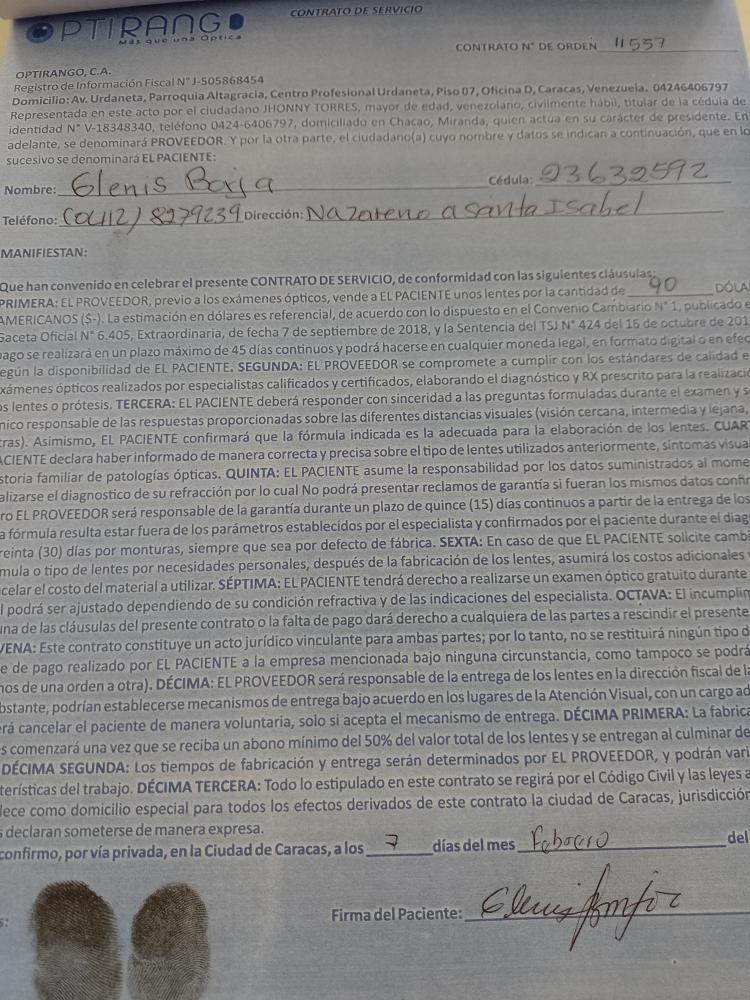 CONTRATO DE SERVICIO
OPTIRANGO
Más que una Óptica
CONTRATO N° DE ORDEN 11557
OPTIRANGO, C.A.
Registro de Información Fiscal N° J-505868454
Domicilio: Av. Urdaneta, Parroquia Altagracia, Centro Profesional Urdaneta, Piso 07, Oficina D, Caracas, Venezuela. 04246406797
Representada en este acto por el ciudadano JHONNY TORRES, mayor de edad, venezolano, civilmente hábil, titular de la cédula de
identidad N° V-18348340, teléfono 0424-6406797, domiciliado en Chacao, Miranda, quien actúa en su carácter de presidente. En
adelante, se denominará PROVEEDOR. Y por la otra parte, el ciudadano(a) cuyo nombre y datos se indican a continuación, que en lo
sucesivo se denominará EL PACIENTE:
Nombre: Glenis Borja Cédula: 23632592
Teléfono: (0412) 8279239 Dirección: Nazareno a santa Isabel
MANIFIESTAN:
Que han convenido en celebrar el presente CONTRATO DE SERVICIO, de conformidad con las siguientes cláusulas:
PRIMERA: EL PROVEEDOR, previo a los exámenes ópticos, vende a EL PACIENTE unos lentes por la cantidad de 90 DÓLA
AMERICANOS ($-). La estimación en dólares es referencial, de acuerdo con lo dispuesto en el Convenio Cambiario N° 1, publicado e
Gaceta Oficial N° 6.405, Extraordinaria, de fecha 7 de septiembre de 2018, y la Sentencia del TSJ N° 424 del 16 de octubre de 201
pago se realizará en un plazo máximo de 45 días continuos y podrá hacerse en cualquier moneda legal, en formato digital o en efec
egún la disponibilidad de EL PACIENTE. SEGUNDA: EL PROVEEDOR se compromete a cumplir con los estándares de calidad e
xámenes ópticos realizados por especialistas calificados y certificados, elaborando el diagnóstico y RX prescrito para la realizació
os lentes o prótesis. TERCERA: EL PACIENTE deberá responder con sinceridad a las preguntas formuladas durante el examen y s
nico responsable de las respuestas proporcionadas sobre las diferentes distancias visuales (visión cercana, intermedia y lejana,
tras). Asimismo, EL PACIENTE confirmará que la fórmula indicada es la adecuada para la elaboración de los lentes. CUAR
ACIENTE declara haber informado de manera correcta y precisa sobre el tipo de lentes utilizados anteriormente, síntomas visua
storia familiar de patologías ópticas. QUINTA: EL PACIENTE asume la responsabilidad por los datos suministrados al mome
alizarse el diagnostico de su refracción por lo cual No podrá presentar reclamos de garantía si fueran los mismos datos confir
ro EL PROVEEDOR será responsable de la garantía durante un plazo de quince (15) días continuos a partir de la entrega de los
a fórmula resulta estar fuera de los parámetros establecidos por el especialista y confirmados por el paciente durante el diag
reinta (30) días por monturas, siempre que sea por defecto de fábrica. SEXTA: En caso de que EL PACIENTE solicite cambi
mula o tipo de lentes por necesidades personales, después de la fabricación de los lentes, asumirá los costos adicionales
celar el costo del material a utilizar. SÉPTIMA: EL PACIENTE tendrá derecho a realizarse un examen óptico gratuito durante
l podrá ser ajustado dependiendo de su condición refractiva y de las indicaciones del especialista. OCTAVA: El incumplim
una de las cláusulas del presente contrato o la falta de pago dará derecho a cualquiera de las partes a rescindir el presente
VENA: Este contrato constituye un acto jurídico vinculante para ambas partes; por lo tanto, no se restituirá ningún tipo d
e de pago realizado por EL PACIENTE a la empresa mencionada bajo ninguna circunstancia, como tampoco se podrá
nos de una orden a otra). DÉCIMA: EL PROVEEDOR será responsable de la entrega de los lentes en la dirección fiscal de la
bstante, podrían establecerse mecanismos de entrega bajo acuerdo en los lugares de la Atención Visual, con un cargo ad
erá cancelar el paciente de manera voluntaria, solo si acepta el mecanismo de entrega. DÉCIMA PRIMERA: La fabrica
s comenzará una vez que se reciba un abono mínimo del 50% del valor total de los lentes y se entregan al culminar de
DÉCIMA SEGUNDA: Los tiempos de fabricación y entrega serán determinados por EL PROVEEDOR, y podrán vari
terísticas del trabajo. DÉCIMA TERCERA: Todo lo estipulado en este contrato se regirá por el Código Civil y las leyes a
lece como domicilio especial para todos los efectos derivados de este contrato la ciudad de Caracas, jurisdicción
s declaran someterse de manera expresa.
confirmo, por vía privada, en la Ciudad de Caracas, a los 7 días del mes Febrero del
s:
Firma del Paciente: Glenis